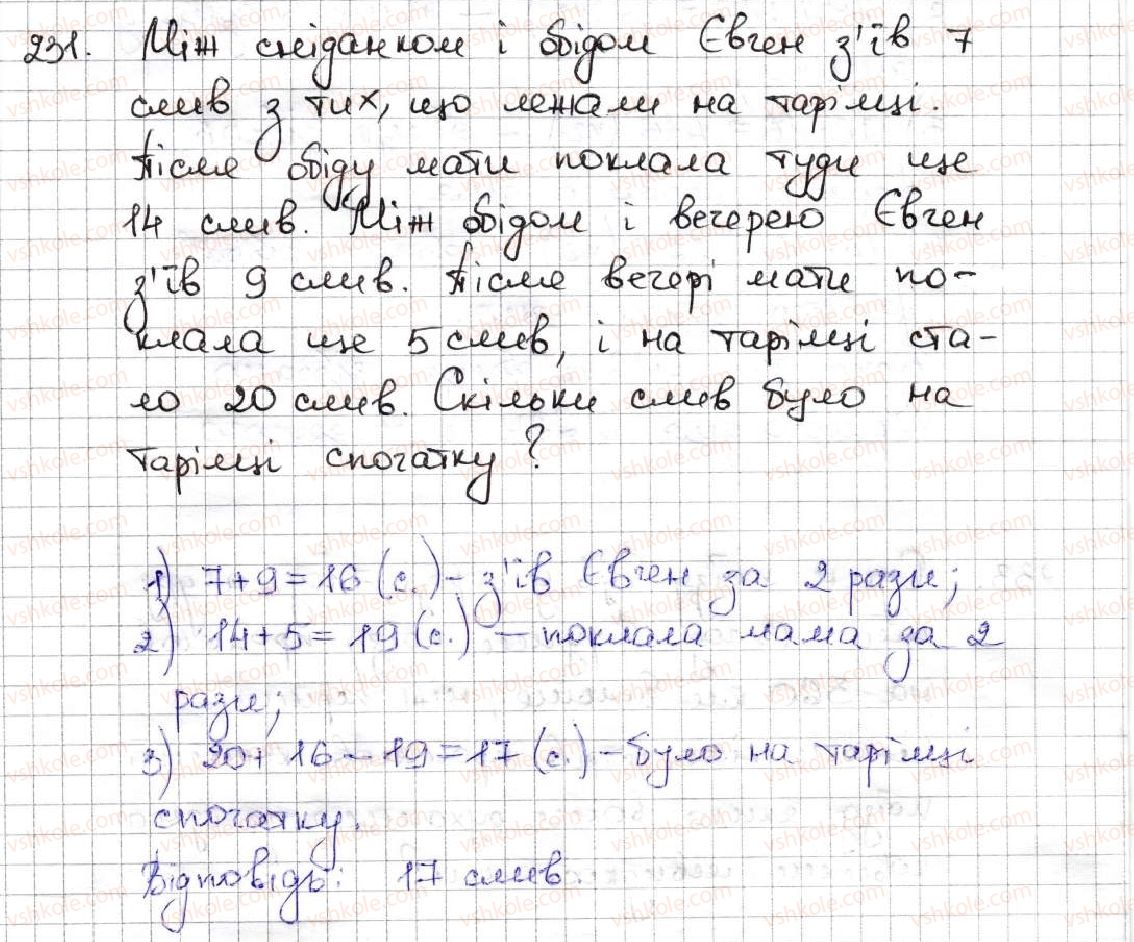 231. Між сніданком і обідом Євген з'їв 7
слив з тих, що лежали на тарілці.
Після обіду мати поклала туди ще
14 слив. Між обідом і вечерею Євген
з'їв 9 слив. Після вечері мати по-
клала ще 5 слив, і на тарілці ста-
ло 20 слив. Скільки слив було на
тарілці спочатку?
1) 7+9=16 (с.) – з'їв Євген за 2 рази;
2) 14+5=19 (с.) – поклала мама за 2
рази;
3) 20+16–19=17 (с.) – було на тарілці
спочатку.
Відповідь: 17 слив.